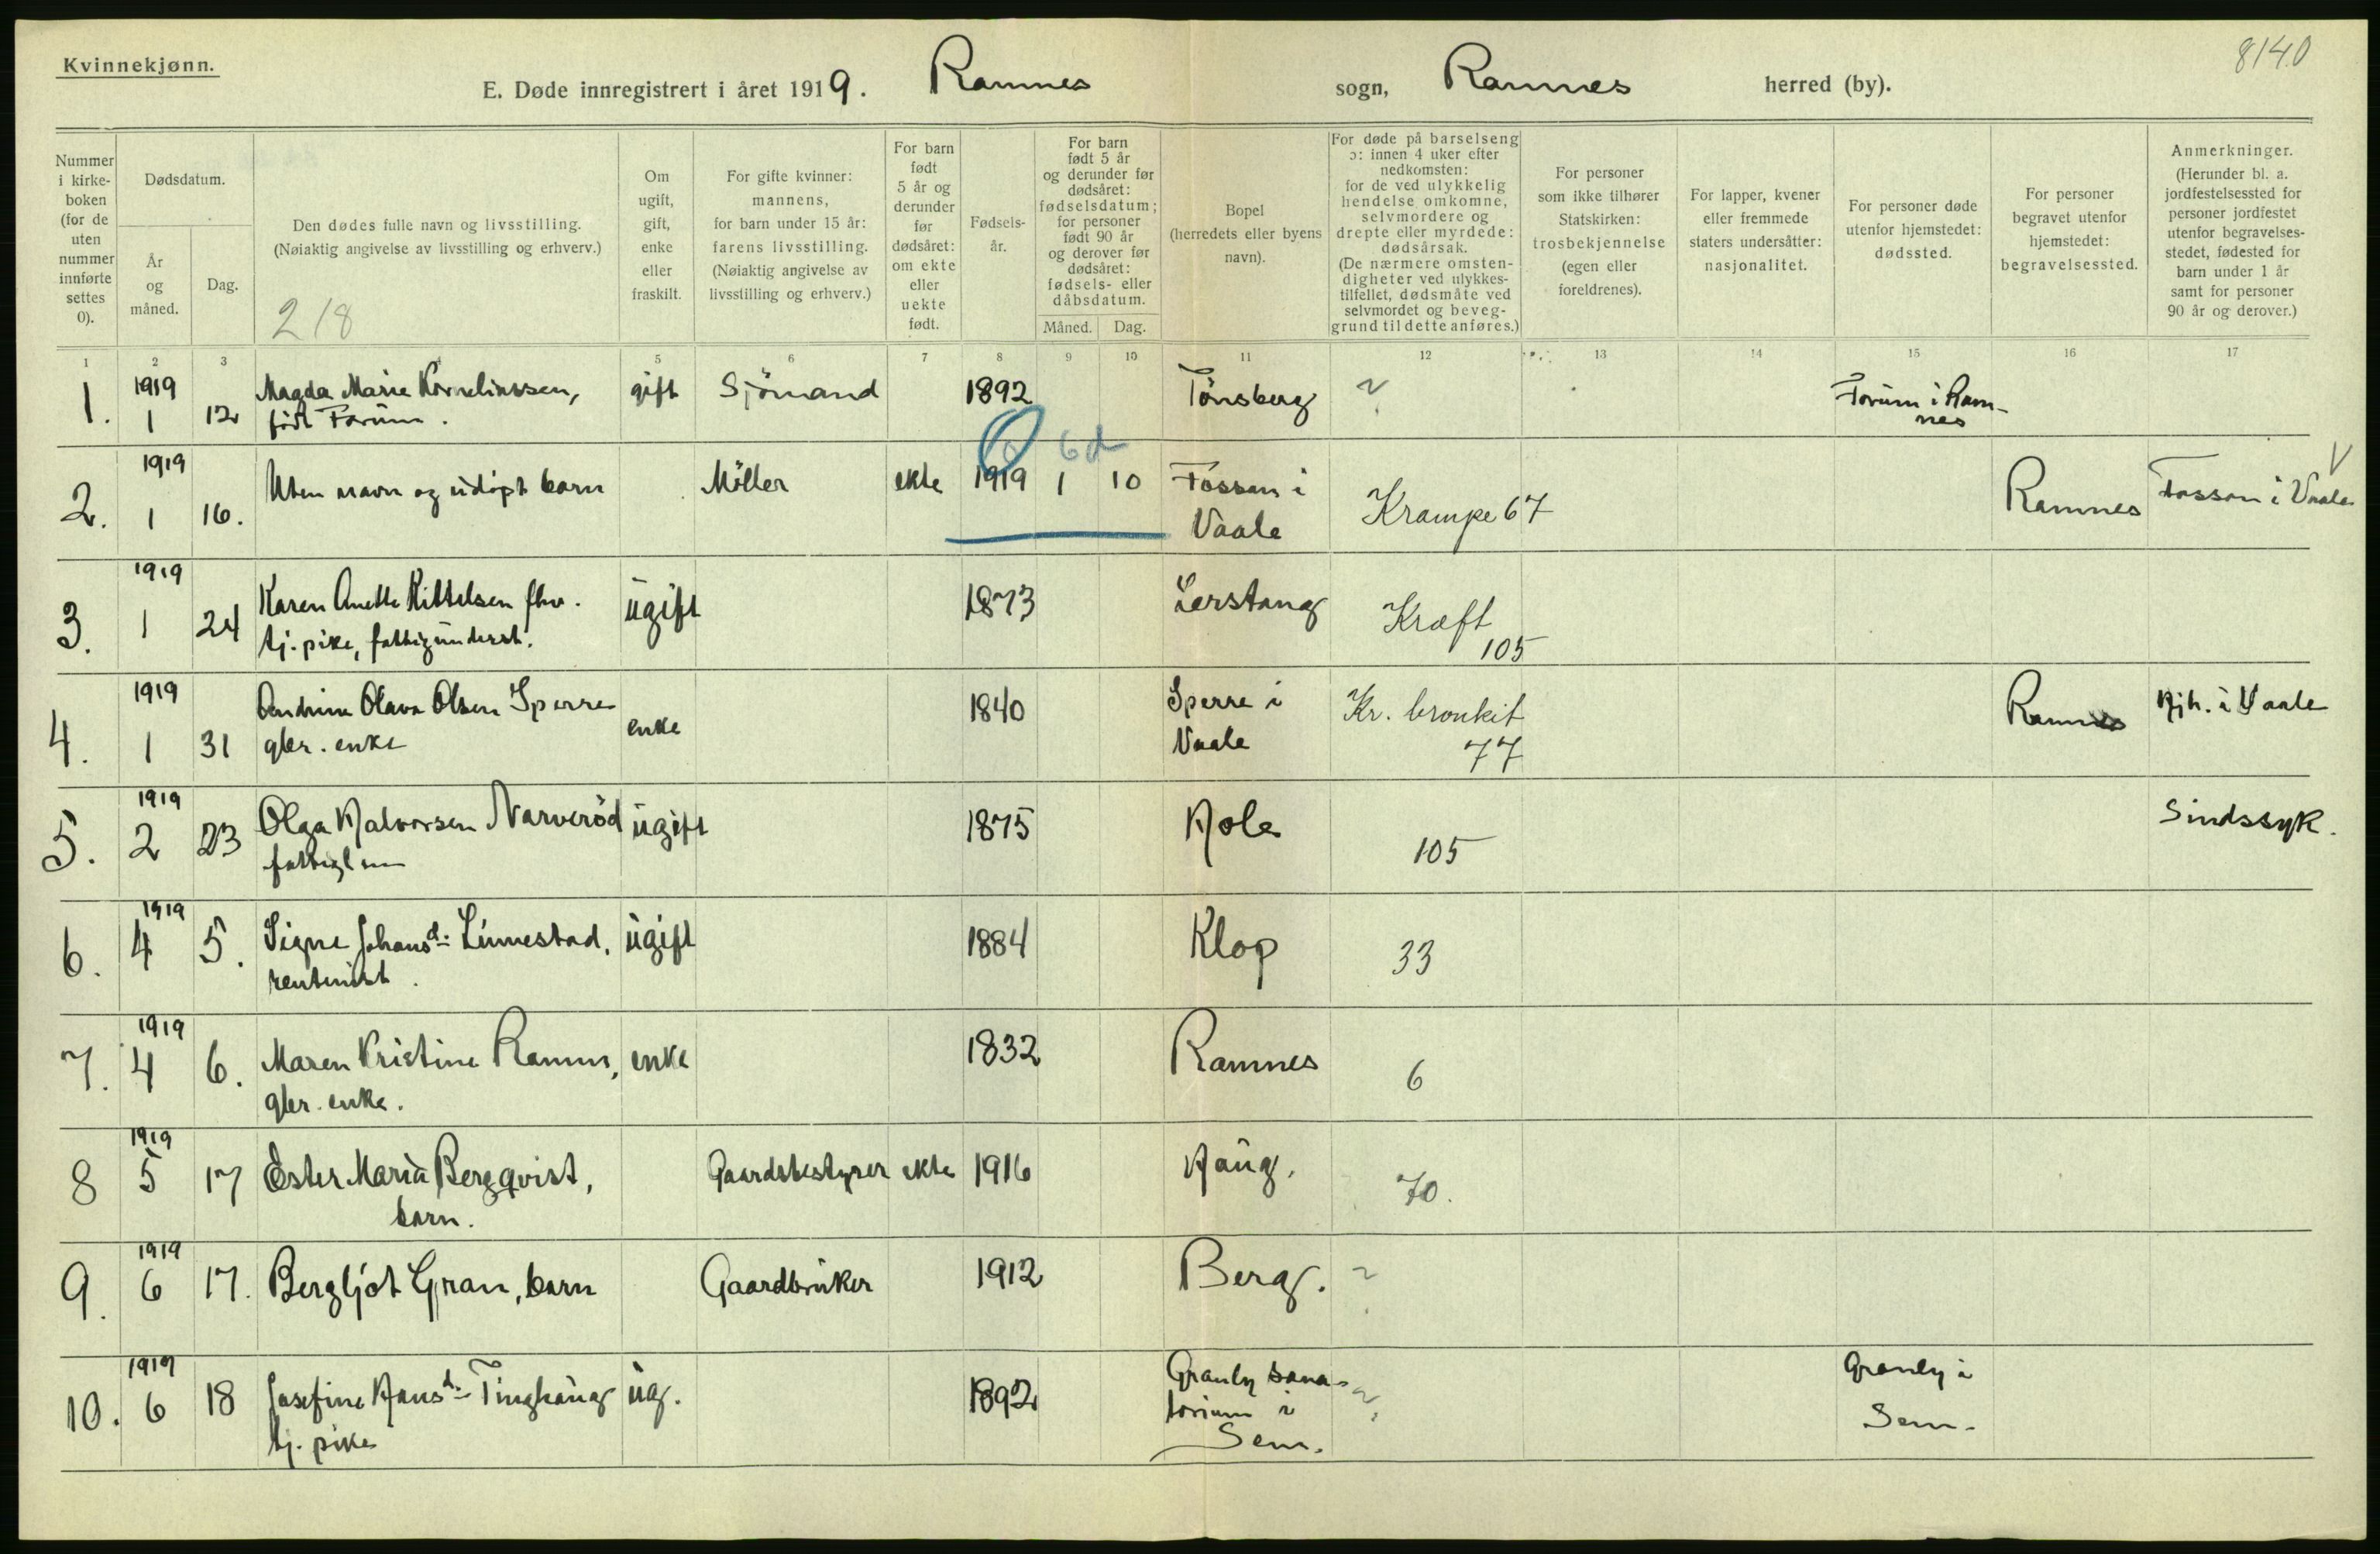 Kvinnekjønn.
8140
E. Døde innregistrert i året 1919. Ramnes sogn, Ramnes herred (by).
Nummer i kirke-boken (for de uten nummer innførte settes 0).
Dødsdatum.
År og måned.
Dag.
Den dødes fulle navn og livsstilling.
(Nøiaktig angivelse av livsstilling og erhverv.)
218
Om ugift, gift, enke eller fraskilt.
For gifte kvinner: mannens, for barn under 15 år: farens livsstilling. (Nøiaktig angivelse av livsstilling og erhverv.)
For barn født 5 år og derunder før dødsåret: om ekte eller uekte født.
Fødsels-år.
For barn født 5 år og derunder før dødsåret: fødselsdatum; for personer født 90 år og derover før dødsåret: fødsels- eller dåbsdatum.
Måned. Dag.
Bopel (herredets eller byens navn).
For døde på barselseng ɔ: innen 4 uker efter nedkomsten: for de ved ulykkelig hendelse omkomne, selvmordere og drepte eller myrdede: dødsårsak. (De nærmere omsten-digheter ved ulykkes-tilfellet, dødsmåte ved selvmordet og beveg-grund til dette anføres.)
For personer som ikke tilhører Statskirken: trosbekjennelse (egen eller foreldrenes).
For lapper, kvener eller fremmede staters undersåtter: nasjonalitet.
For personer døde utenfor hjemstedet: dødssted.
For personer begravet utenfor hjemstedet: begravelsessted.
Anmerkninger. (Herunder bl. a. jordfestelsessted for personer jordfestet utenfor begravelses-stedet, fødested for barn under 1 år samt for personer 90 år og derover.)
1 2 3 4 5 6 7 8 9 10 11 12 13 14 15 16 17
1. 1919 1 12 Magda Marie Kornelinssen, gift Sjömand 1892 Tönsberg ? Forum i Ram-
født Forum. nes
6d
2. 1919 1 16. Uten navn og udöpt barn Möller ekte 1919 1 10 Fossan i Krampe 67 Ramnes Fossan i Vaale V
Vaale
3. 1919 1 24 Karen Anette Kittelsen fhv. ugift 1873 Lerstang Kræft
tj. pike, fattigunderst. 105
4. 1919 1 31 Andrine Olava Olsen Sperre enke 1840 Sperre i Kr. bronkit Ramnes i Vaale
gbr. enke Vaale 77
5. 1919 2 23 Olga Halvorsen Narveröd ugift 1875 Hole 105 Sindssyk.
fattiglem
6. 1919 4 5. Signe Johansd: Linnestad, ugift 1884 Klop 33
rentenist.
7. 1919 4 6. Maren Kristine Ramnes, enke 1832 Ramnes 6
gbr. enke.
8 1919 5 17 Ester Maria Bergqvist, Gaardsbestyrer ekte 1916 Haug. 70.
barn.
9. 1919 6 17. Bergljot Gran, barn Gaardbruker 1912 Berg. ?
10. 1919 6 18 Josefine Hansd: Tinghaug ug. 1892 Granly sana- ? Granly i
tj. pike torium i Sem.
Sem.